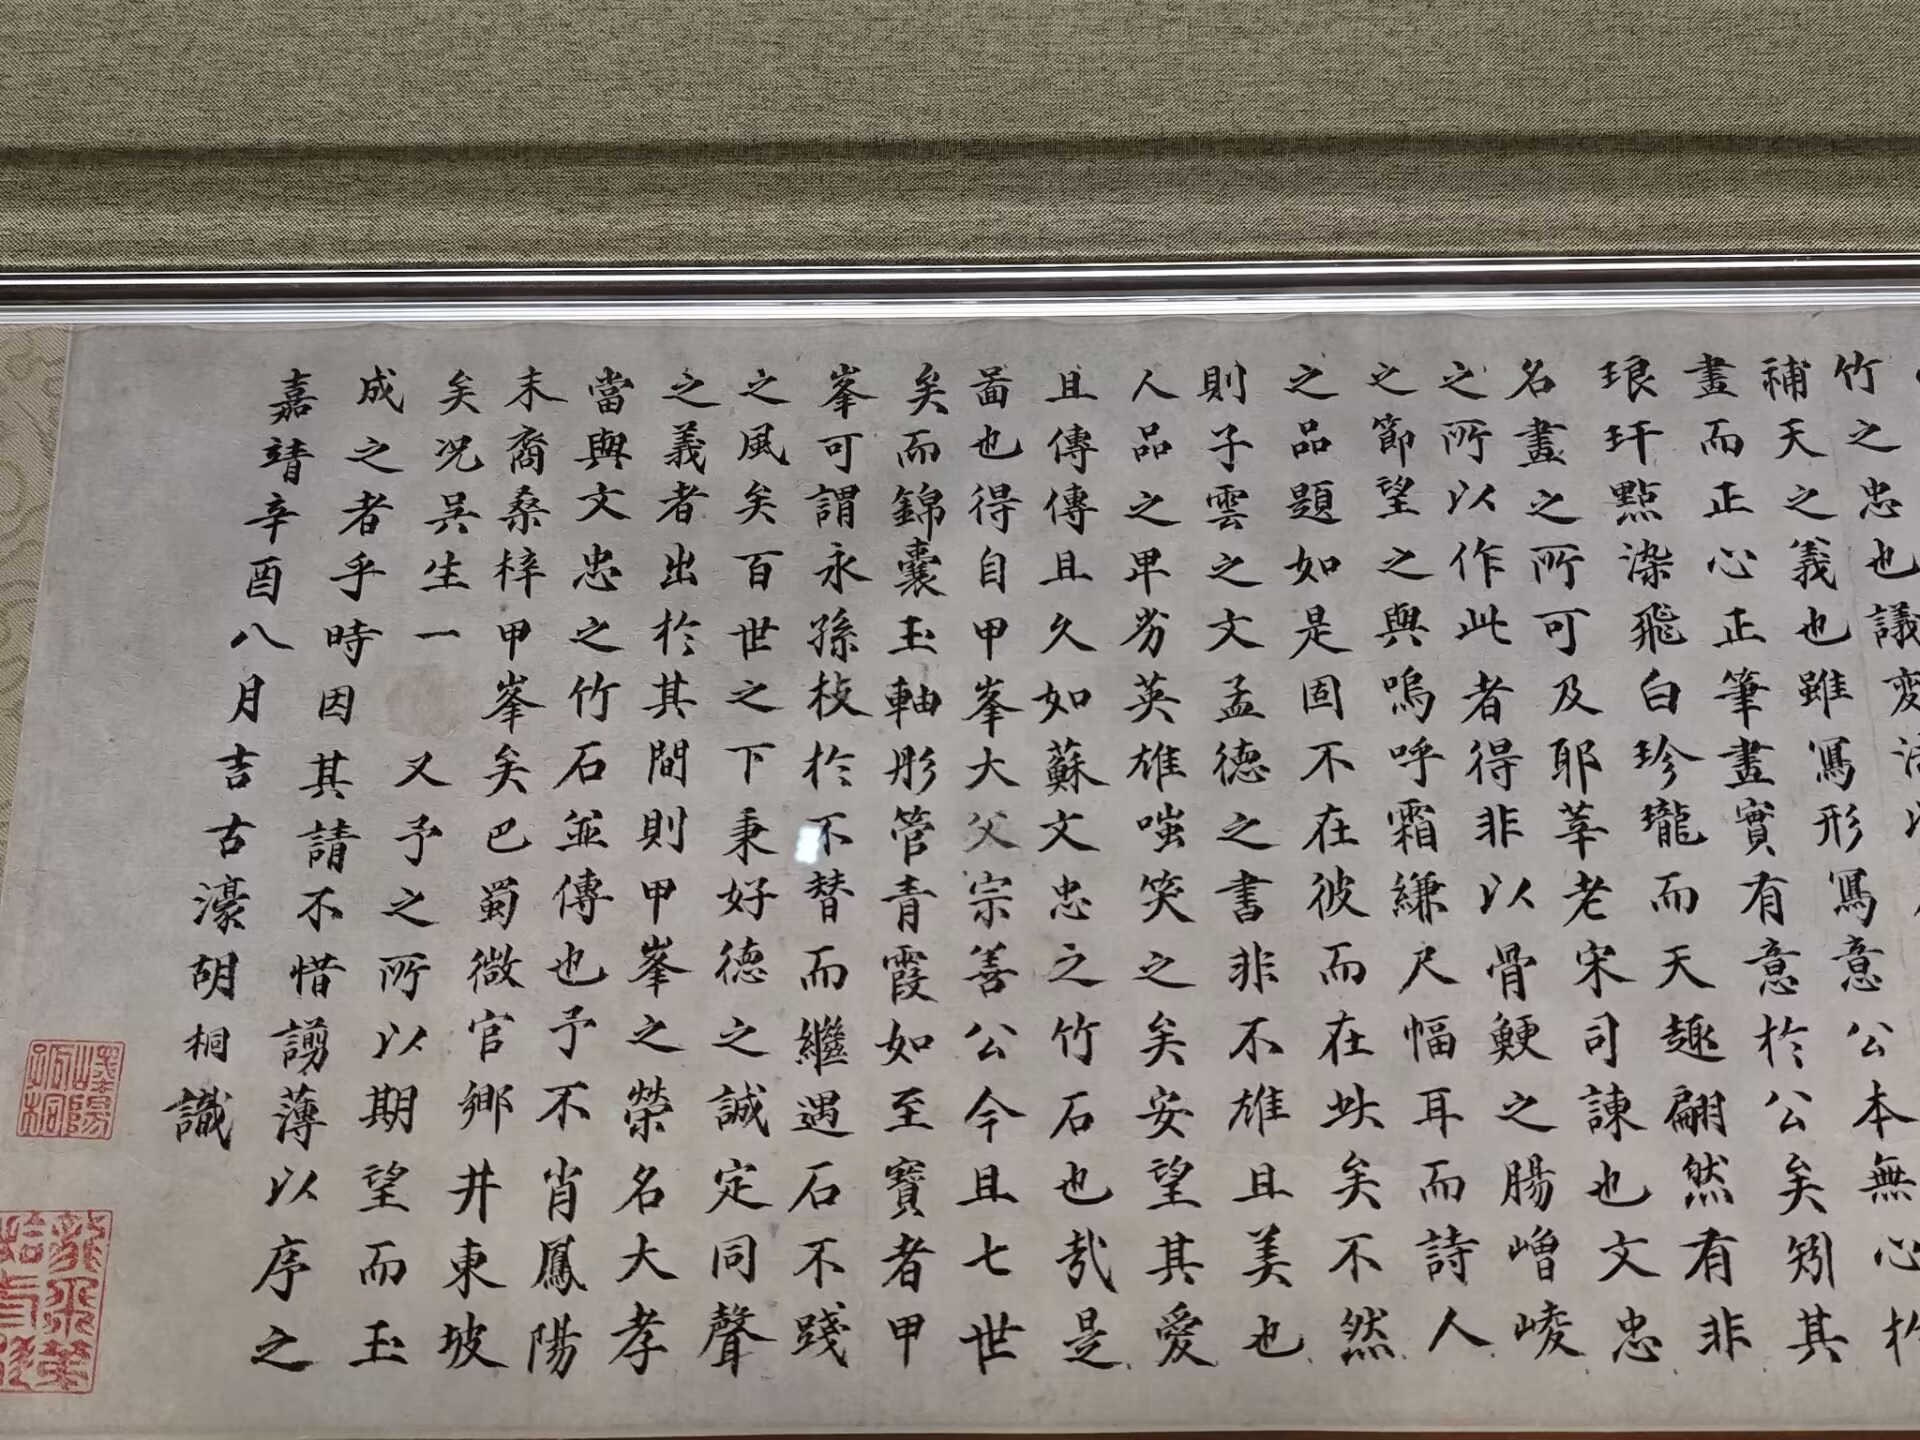 竹之忠也議變法
補天之義也雖寫形寫意公本無心於
畫而正心正筆畫實有意於公矣矧其
琅玕點染飛白珍瓏而天趣翩然有非
名畫之所可及耶莘老宋司諫也文忠
之所以作此者得非以骨鯁之腸嶒崚
之節望之與嗚呼霜縑尺幅耳而詩人
之品題如是固不在彼而在此矣不然
則子雲之文孟德之書非不雄且美也
人品之卑劣英雄嗤笑之矣安望其愛
且傳傳且久如蘇文忠之竹石也哉是
啚也得自甲峯大父宗善公今且七世
矣而錦囊玉軸彤管青霞如至寶者甲
峯可謂永孫枝於不替而繼遇石不踐
之風矣百世之下秉好德之誠定同聲
之義者出於其間則甲峯之榮名大孝
當與文忠之竹石並傳也予不肖鳳陽
末裔桑梓甲峯矣巴蜀微官鄉井東坡
矣况吴生一又予之所以期望而玉
成之者乎時因其請不惜謭薄以序之
嘉靖辛酉八月吉古濠胡桐識